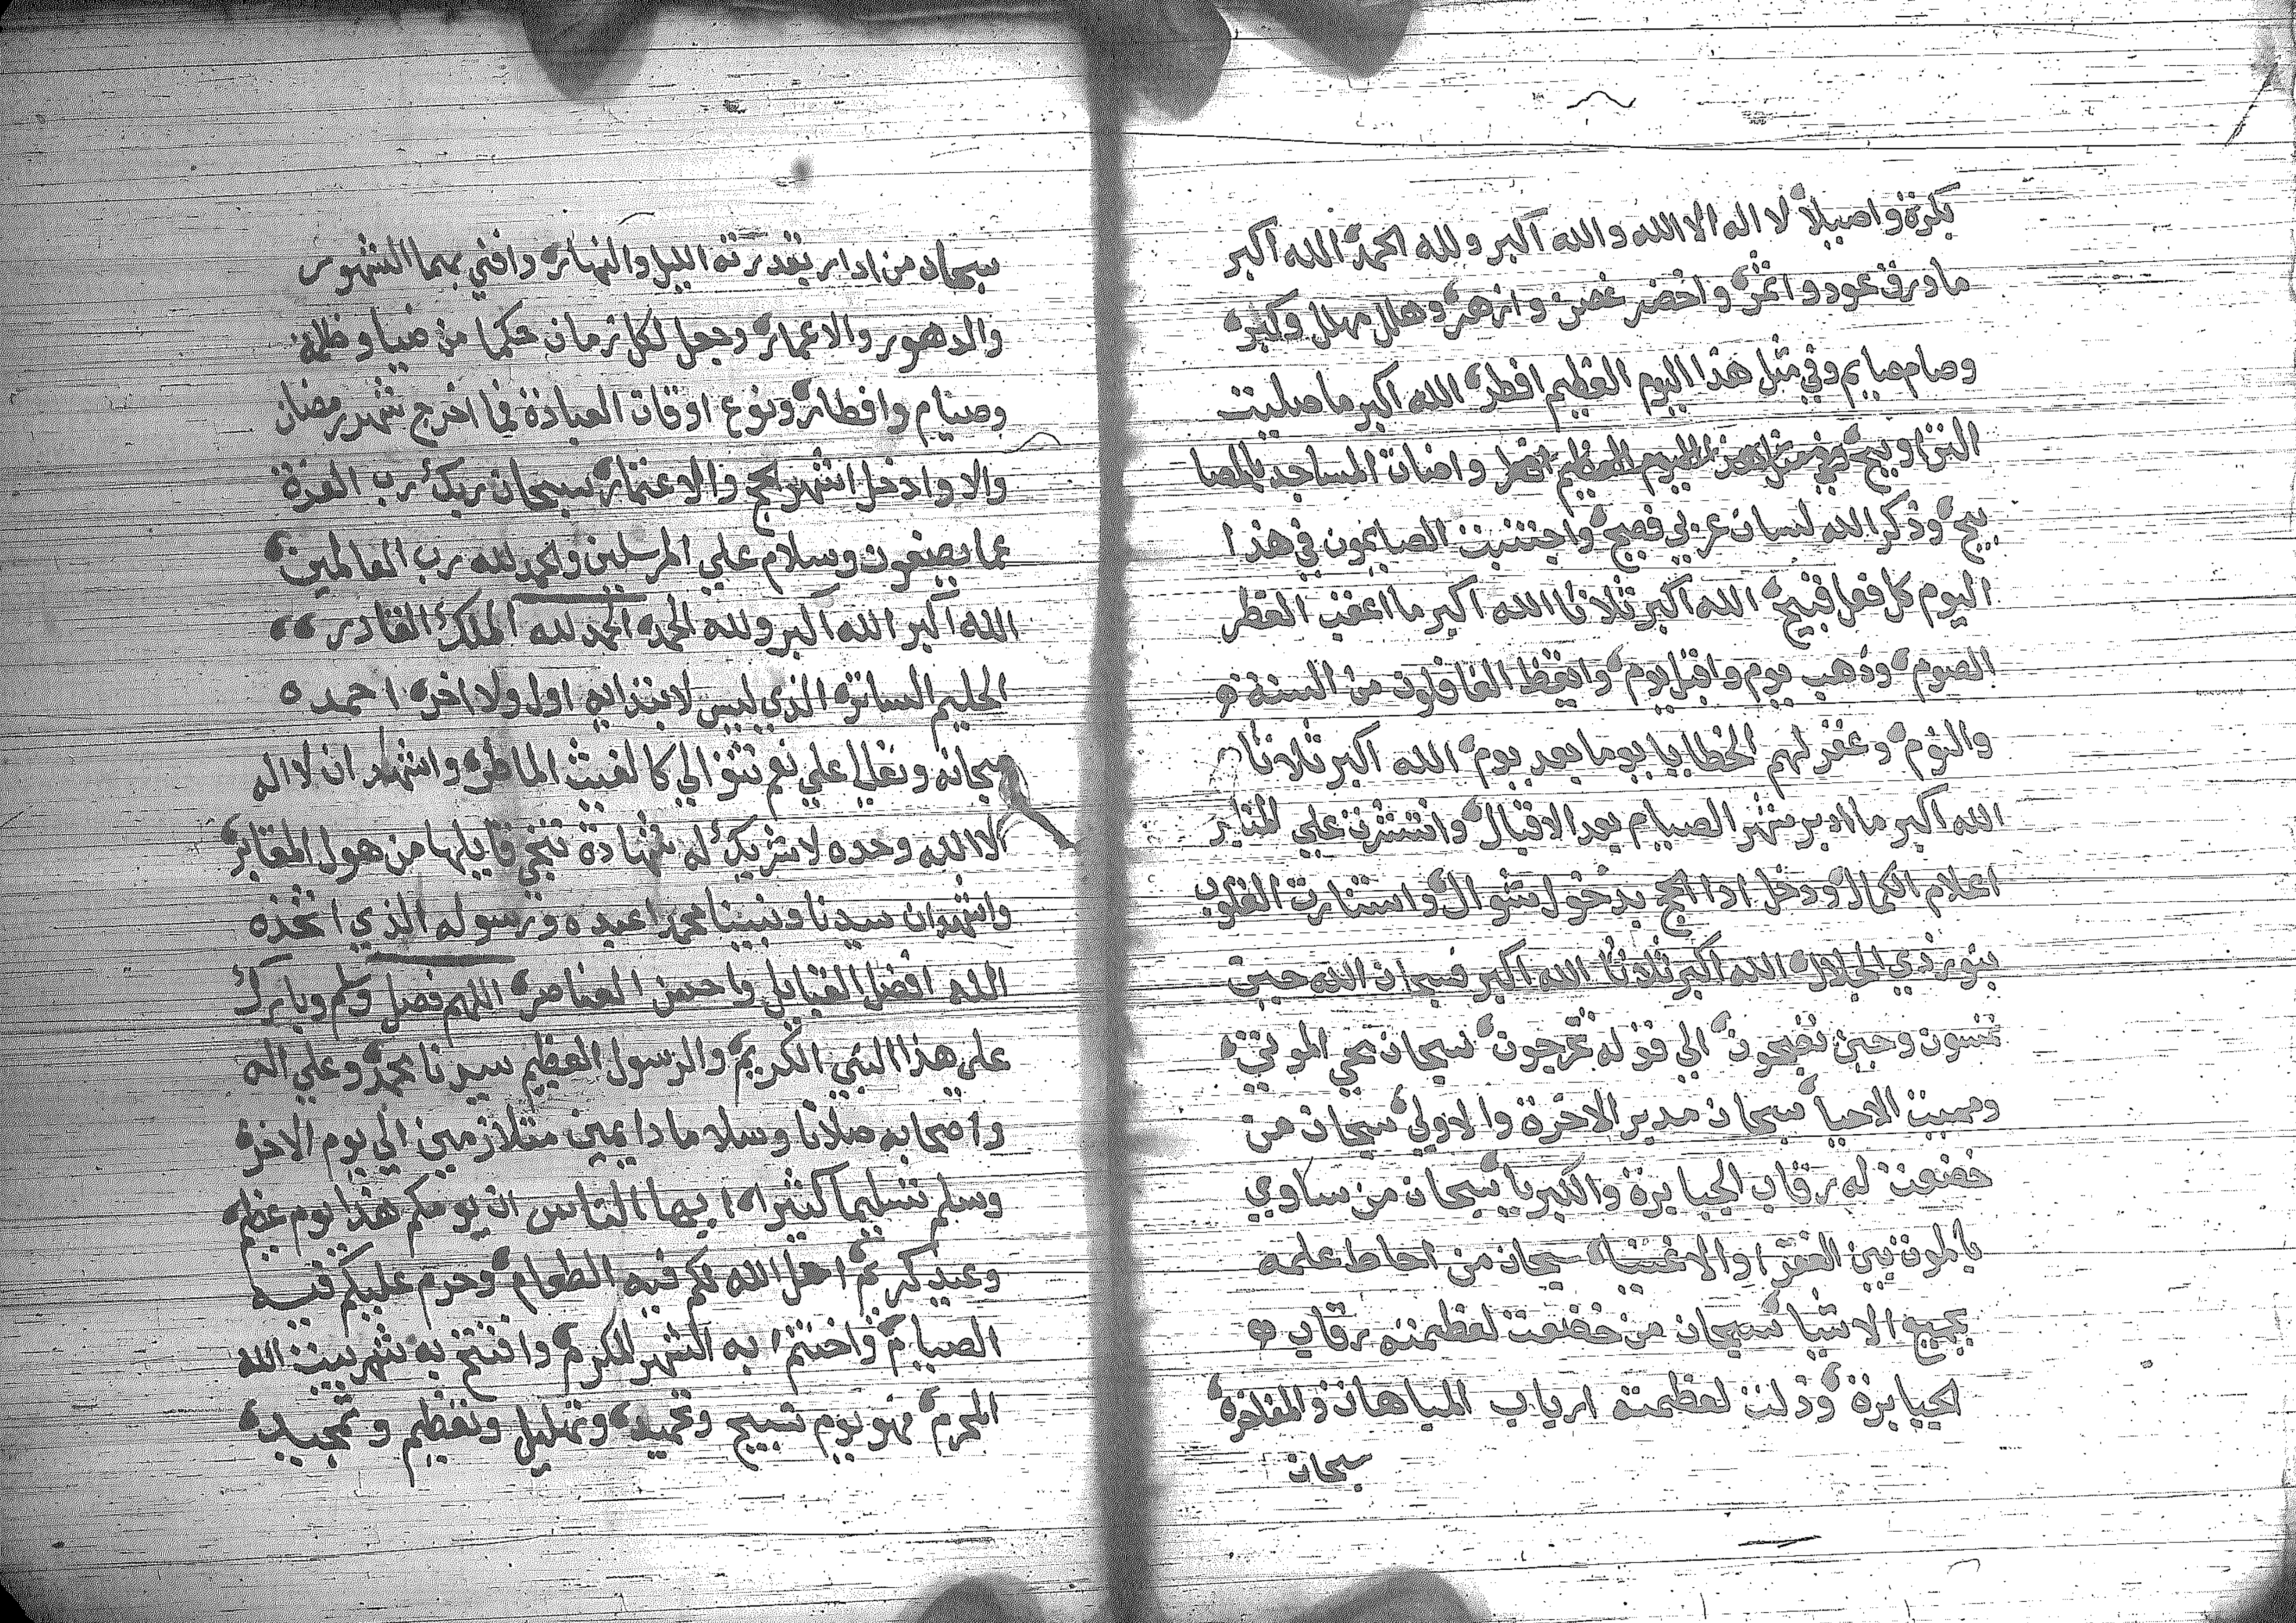 بكرة واصيلا لا اله الا الله والله اكبر ولله الحمد الله اكبر
ما ورق عود واثمر واخضر غصن وازهر وهلل مهلل وكبر
وصام صايم وفي مثل هذا اليوم العظيم افطر الله اكبر ما صليت
التراويح في مثل هذا اليوم العظيم افطر واضات المساجد بالمصا
بيح وذكر الله لسان عربي فصيح واجتنبت الصايمون في هذا
اليوم كل فعل قبيح الله اكبر ثلاثا الله اكبر ما اعقب الفطر
الصوم وذهب يوم واقبل يوم وايقظ الغافلون من السنة
والنوم وغفر لهم الخطايا يوما بعد يوم الله اكبر ثلاثا
الله اكبر ما ادبر شهر الصيام بعد الاقبال وانتشرت علي المنابر
اعلام الكمال ودخل ادا الحج بدخول شوال واستنارت القلوب
بنور ذي الجلال الله اكبر ثلاثا الله اكبر فسبحان الله حين
تمسون وحين تصبحون الي قوله تخرجون سبحان محي الموتي
ومميت الاحيا سبحان مدبر الاخرة والاولي سبحان من
خضعت له رقاب الجبابرة والكبريا سبحان من ساوي
بالموت بين الفقرا والاغنياه سبحان من احاط علمه
بجميع الاشيا سبحان من خضعت لعظمته رقاب
الجبابرة وذلت لعظمته ارباب المباهات والمفاخرة
سبحان
سبحان من ادار بقدرته الليل والنهار وافني بهما الشهور
والدهور والاعمار وجعل لكل زمان حكما من ضيا وظلمة
وصيام وافطار ونوع اوقات العبادة فما اخرج شهر رمضان
والا وادخل اشهر الحج والاعتمار سبحان ربك رب العزة
عما يصفون وسلام علي المرسلين والحمد لله رب العالمين
الله اكبر الله اكبر ولله الحمد الحمد لله الملك القادر
الحليم الساتر الذي ليس لابتدايه اول ولا اخر احمده
سبحانه وتعالي علي نعم تتوالي كالغيث الماطر واشهد ان لا اله
الا الله وحده لا شريك له شهادة تنجي قايلها من هول المقابر
واشهد ان سيدنا ونبينا محمدا عبده ورسوله الذي اتخذه
الله افضل القبايل واحسن العناصر اللهم فصل وسلم وبارك
علي هذا النبي الكريم والرسول العظيم سيدنا محمد وعلي اله
واصحابه صلاتا وسلاما دايمين متلازمين الي يوم الاخر
وسلم تسليما كثيراه ايها الناس ان يومكم هذا يوم عظيم
وعيد كريم احل الله لكم فيه الطعام وحرم عليكم فيه
الصيام واختتم به الشهر المكرم وافتتح به شهر بيت الله
المحرم فهو يوم تسبيح وتحميد وتهليل وتعظيم وتمجيد